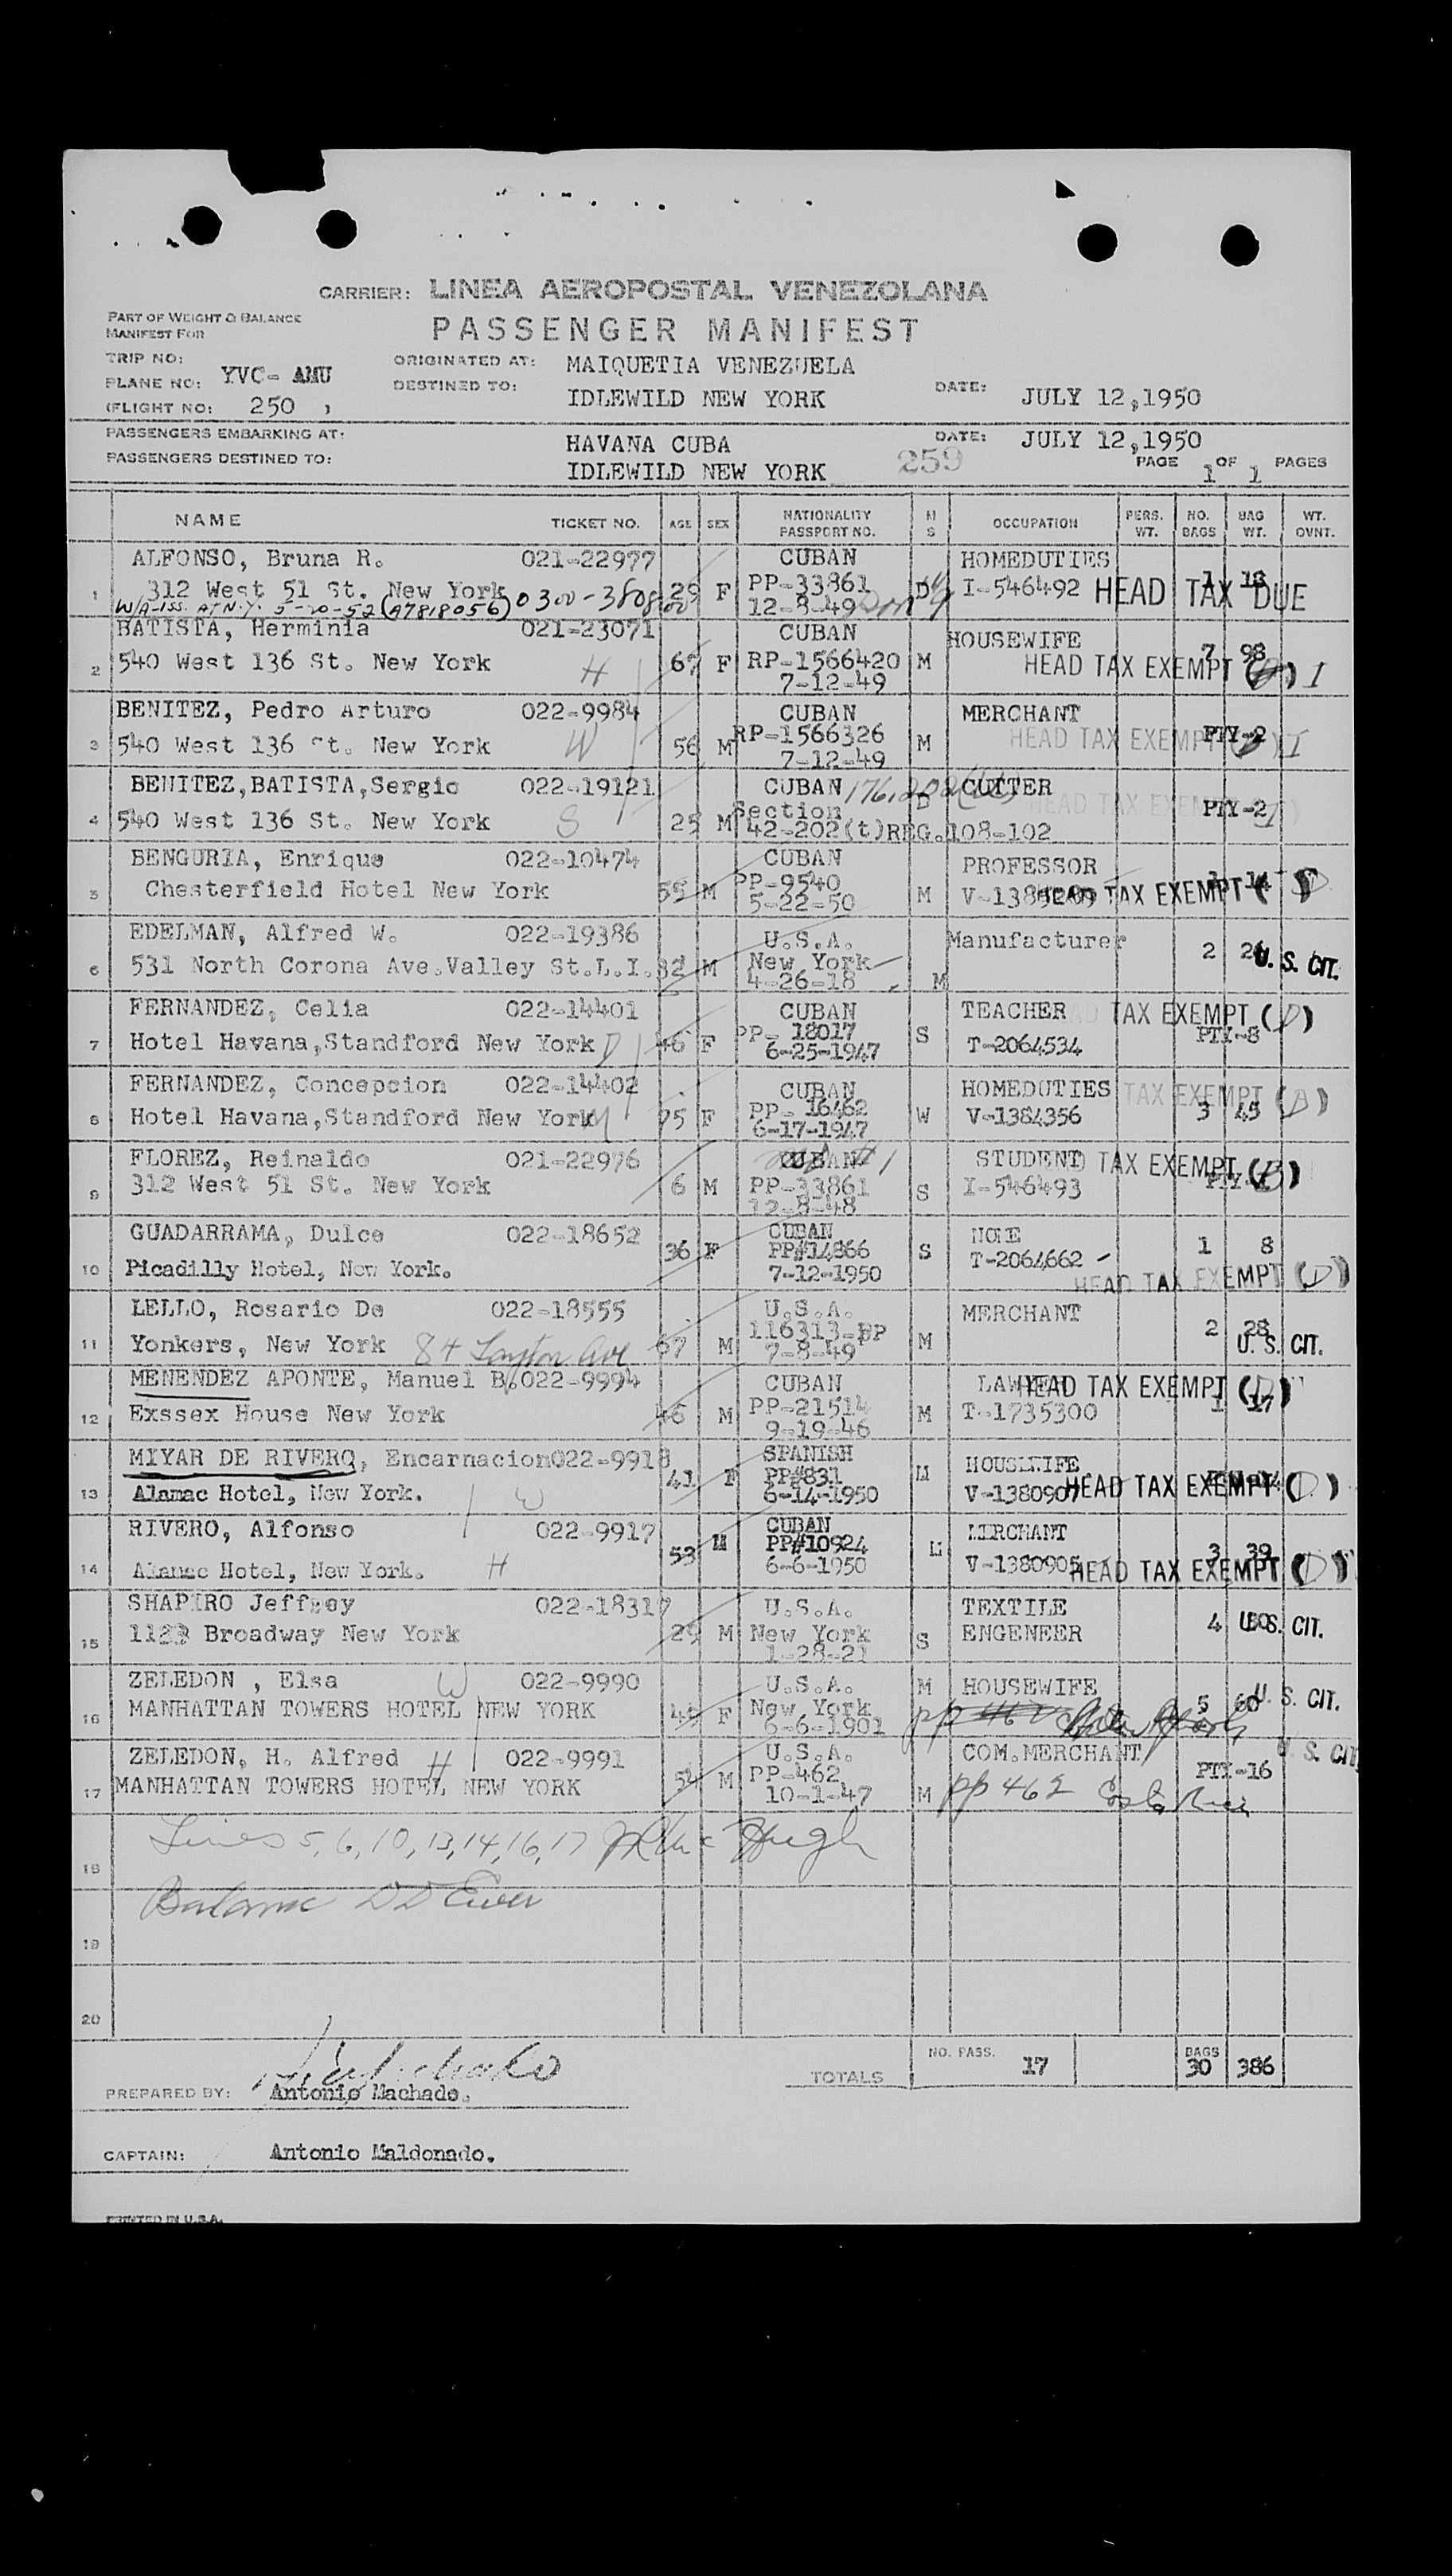 CARRIER: LINEA AEROPOSTAL VENEZOLANA
PART OF WEIGHT & BALANCE
MANIFEST FOR
PASSENGER MANIFEST
TRIP NO:
PLANE NO: YVC- AMU
(FLIGHT NO: 250 )
ORIGINATED AT: MAIQUETIA VENEZUELA
DESTINED TO: IDLEWILD NEW YORK
DATE: JULY 12,1950
PASSENGERS EMBARKING AT: HAVANA CUBA
DATE: JULY 12,1950
PASSENGERS DESTINED TO: IDLEWILD NEW YORK
259
PAGE 1 OF 1 PAGES
NAME TICKET NO. AGE SEX NATIONALITY PASSPORT NO. M S OCCUPATION PERS. WT. NO. BAGS BAG WT. WT. OVNT.
ALFONSO, Bruna R. 021-22977 CUBAN HOMEDUTIES
1 312 West 51 St. New York 29 F PP-33861 D I-546492 1 18 HEAD TAX DUE
W/A-ISS. AT N.Y. 5-20-52 (A7818056) 0300-38080 12-8-49
BATISTA, Herminia 021-23071 CUBAN HOUSEWIFE
2 540 West 136 St. New York H 67 F RP-1566420 M 7 98
7-12-49 HEAD TAX EXEMPT ( ) I
BENITEZ, Pedro Arturo 022-9984 CUBAN MERCHANT
3 540 West 136 St. New York W 56 M RP-1566326 M PTY-2
7-12-49 HEAD TAX EXEMPT ( ) I
BENITEZ,BATISTA,Sergio 022-19121 CUBAN 176.202 CUTTER
4 540 West 136 St. New York S 25 M Section D PTY-2
42-202(t)REG.108-102 HEAD TAX EXEMPT
BENGURIA, Enrique 022-10474 CUBAN PROFESSOR
5 Chesterfield Hotel New York 55 M PP-9540 M V-1389209 1 14
5-22-50 HEAD TAX EXEMPT (D)
EDELMAN, Alfred W. 022-19386 U.S.A. Manufacturer
6 531 North Corona Ave.Valley St.L.I. 32 M New York M 2 U. S. CIT.
4-26-18
FERNANDEZ, Celia 022-14401 CUBAN TEACHER HEAD TAX EXEMPT (D)
7 Hotel Havana,Standford New York D 46 F PP- 18017 S T-2064534 PTY-8
6-25-1947
FERNANDEZ, Concepcion 022-14402 CUBAN HOMEDUTIES TAX EXEMPT (D)
8 Hotel Havana,Standford New York M 75 F PP- 16462 W V-1384356 3 45
6-17-1947
FLOREZ, Reinaldo 021-22976 CUBAN STUDENT HEAD TAX EXEMPT (B)
9 312 West 51 St. New York 6 M PP-33861 S I-546493
12-8-48
GUADARRAMA, Dulce 022-18652 CUBAN NONE
10 Picadilly Hotel, New York. 36 F PP#14866 S T-2064662 1 8
7-12-1950 HEAD TAX EXEMPT (D)
LELLO, Rosario De 022-18555 U.S.A. MERCHANT
11 Yonkers, New York 84 Layton Ave 67 M 116313-PP M 2 28
7-8-49 U. S. CIT.
MENENDEZ APONTE, Manuel B. 022-9994 CUBAN LAWYER HEAD TAX EXEMPT (D)
12 Exssex House New York 46 M PP-21514 M T-1735300 1 17
9-19-46
MIYAR DE RIVERO, Encarnacion022-9918 SPANISH HOUSEWIFE
13 Alamac Hotel, New York. W 41 F PP#831 M V-1380907
6-14-1950 HEAD TAX EXEMPT (D)
RIVERO, Alfonso 022-9917 CUBAN MERCHANT
14 Alamac Hotel, New York. H 53 M PP#10924 M V-1380905 3 39
6-6-1950 HEAD TAX EXEMPT (D)
SHAPIRO Jeffrey 022-18317 U.S.A. TEXTILE
15 1123 Broadway New York 29 M New York S ENGENEER 4 U. S. CIT.
1-28-21
ZELEDON , Elsa W 022-9990 U.S.A. M HOUSEWIFE
16 MANHATTAN TOWERS HOTEL NEW YORK 49 F New York 5 60 U. S. CIT.
6-6-1901 pp 462
ZELEDON, H. Alfred H 022-9991 U.S.A. COM.MERCHANT
17 MANHATTAN TOWERS HOTEL NEW YORK 54 M PP-462 M PTY-16 U. S. CIT.
10-1-47 pp 462 Costa Rica
Lines 5,6,10,13,14,16,17 Hugh
18
Balance
19
20
TOTALS NO. PASS. 17 BAGS 30 386
PREPARED BY: Antonio Machado.
CAPTAIN: Antonio Maldonado.
PRINTED IN U.S.A.